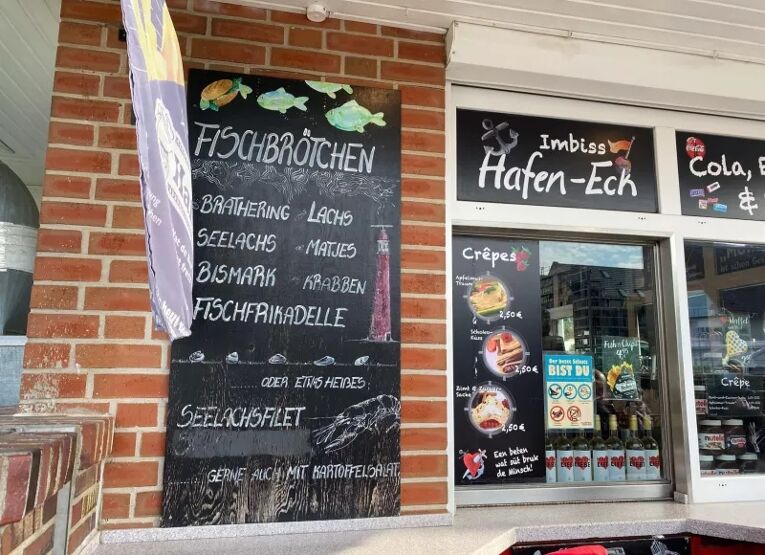 FISCHBRÖTCHEN
BRATHERING LACHS
SEELACHS MATJES
BISMARK KRABBEN
FISCHFRIKADELLE
ODER ETWAS HEIßES:
SEELACHSFILET
GERNE AUCH MIT KARTOFFELSALAT
Imbiss
Hafen-Eck
Coca-Cola
Cola,
&
Crêpes
Apfelmus-
Traum
2,50 €
Schoko-
Kuss
2,50 €
Zimt & Zucker-
Sache
2,50 €
Een beten
wat söt bruk
de Minsch!
Der beste Schutz
BIST DU
Fish & Chips
Crêpe
nutella